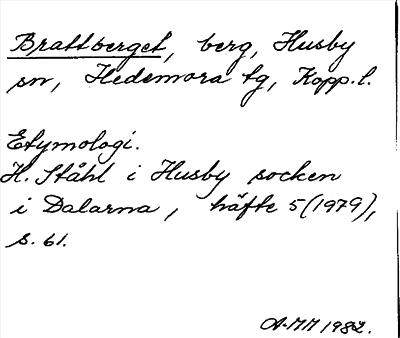 Brattberget, berg, Husby
sn, Hedemora tg, Kopp. l.
Etymologi.
H. Ståhl i Husby socken
i Dalarna, häfte 5 (1979),
s. 61.
A-MM 1982.